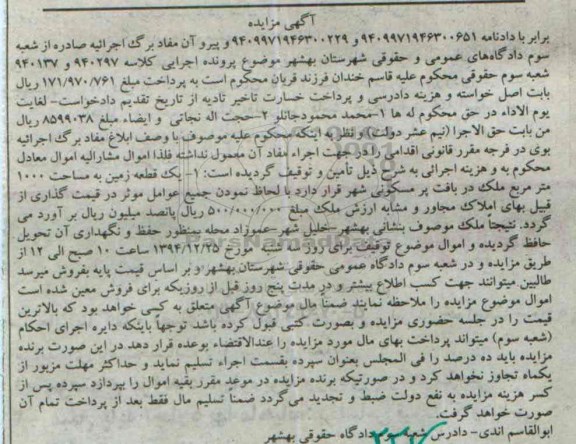 آگهی مزایده
برابر با دادنامه ۹۴۰۹۹۷۱۹۴۶۳۰۰۶۵۱ و ۹۴۰۹۹۷۱۹۴۶۳۰۰۲۲۹ و پیرو آن مفاد برگ اجرائیه صادره از شعبه
سوم دادگاههای عمومی و حقوقی شهرستان بهشهر موضوع پرونده اجرایی کلاسه ۹۴۰۲۹۷ و ۹۴۰۱۳۷
شعبه سوم حقوقی محکوم علیه قاسم خندان فرزند قربان محکوم است به پرداخت مبلغ ۱۷۱/۹۷۰/۷۶۱ ریال
بابت اصل خواسته و هزینه دادرسی و پرداخت خسارت تاخیر تادیه از تاریخ تقدیم دادخواست- لغایت
یوم الاداه در حق محکوم له ها ۱-محمد محمودجانلو ۲-حجت اله نجاتی و ایضاء مبلغ ۸۵۹۹۰۳۸ ریال
من بابت حق الاجرا (نیم عشر دولت) و نظر به اینکه محکوم علیه موصوف با وصف ابلاغ مفاد برگ اجرائیه
بوی در فرجه مقرر قانونی اقدامی را در جهت اجراء مفاد آن معمول نداشته فلذا اموال مشارالیه اموال معادل
محکوم به و هزینه اجرائی به شرح ذیل تأمین و توقیف گردیده است: ۱- یک قطعه زمین به مساحت ۱۰۰۰
متر مربع ملک در بافت پر مسکونی شهر قرار دارد با لحاظ نمودن جمیع عوامل موثر در قیمت گذاری از
قبیل بهای املاک مجاور و مشابه ارزش ملک مبلغ ۵۰۰/۰۰۰/۰۰۰ ریال پانصد میلیون ریال بر آورد می
گردد. نتیجتاً ملک موصوف بنشانی بهشهر-خلیل شهر-عموزاد محله بمنظور حفظ و نگهداری آن تحویل
حافظ گردیده و اموال موضوع توقیف برای روز سه شنبه مورخ ۱۳۹۴/۱۲/۲۵ ساعت ۱۰ صبح الی ۱۲ از
طریق مزایده و در شعبه سوم دادگاه عمومی حقوقی شهرستان بهشهر و بر اساس قیمت پایه بفروش میرسد
طالبین میتوانند جهت کسب اطلاع بیشتر و در مدت پنج روز قبل از روزیکه برای فروش معین شده است
اموال موضوع مزایده را ملاحظه نمایند ضمناً مال موضوع آگهی متعلق به کسی خواهد بود که بالاترین
قیمت را در جلسه حضوری مزایده و بصورت کتبی قبول کرده باشد توجهاً باینکه دایره اجرای احکام
(شعبه سوم) میتواند پرداخت بهای مال مورد مزایده را عندالاقتضاء بوعده قرار دهد در این صورت برنده
مزایده باید ده درصد را فی المجلس بعنوان سپرده بقسمت اجراء تسلیم نماید و حداکثر مهلت مزبور از
یکماه تجاوز نخواهد کرد و در صورتیکه برنده مزایده در موعد مقرر بقیه اموال را نپردازد سپرده پس از
کسر هزینه مزایده به نفع دولت ضبط و تجدید می‌گردد ضمناً تسلیم مال فقط بعد از پرداخت تمام آن
صورت خواهد گرفت.
ابوالقاسم اندی- دادرس شعبه سوم دادگاه حقوقی بهشهر